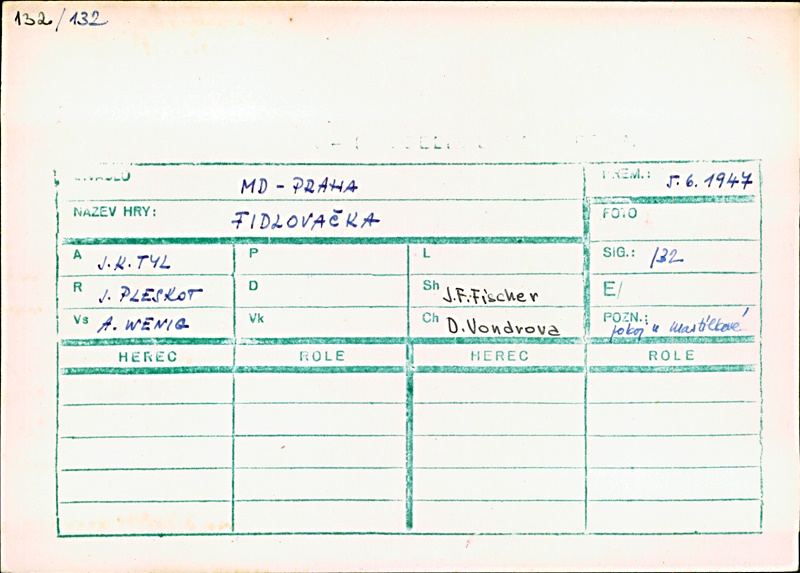 132/132
DIVADLO MD - PRAHA PREM.: 5.6.1947
NAZEV HRY: FIDLOVAČKA FOTO
A J.K. TYL P L SIG.: 132
R J. PLESKOT D Sh J.F.Fischer E/
Vs A. WENIG Vk Ch D.Vondrova POZN.: pokoj u Mastílkové
HEREC ROLE HEREC ROLE